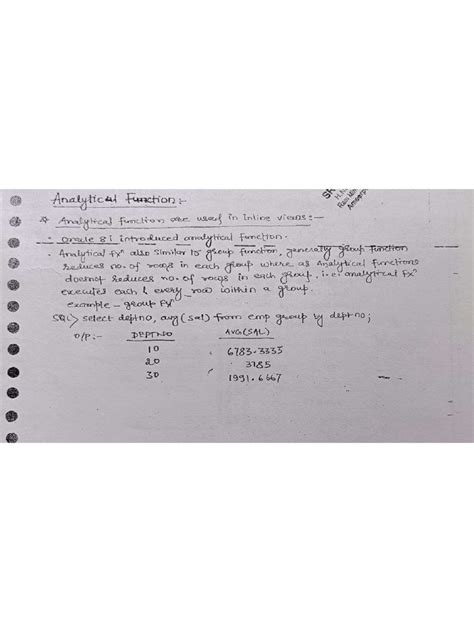 Analytical Function:-
Analytical function are used in inline views:-
oracle 8i introduced analytical function.
Analytical fxn also similar to group function, generally group function
reduces no. of rows in each group where as Analytical functions
doesnot reduces no. of rows in each group, i.e; analytical fxn
executes each & every row within a group.
example - group fxn
SQL> select deptno, avg(sal) from emp group by deptno;
O/P:- DEPTNO AVG(SAL)
10 6783.3333
20 3785
30 1991.6667